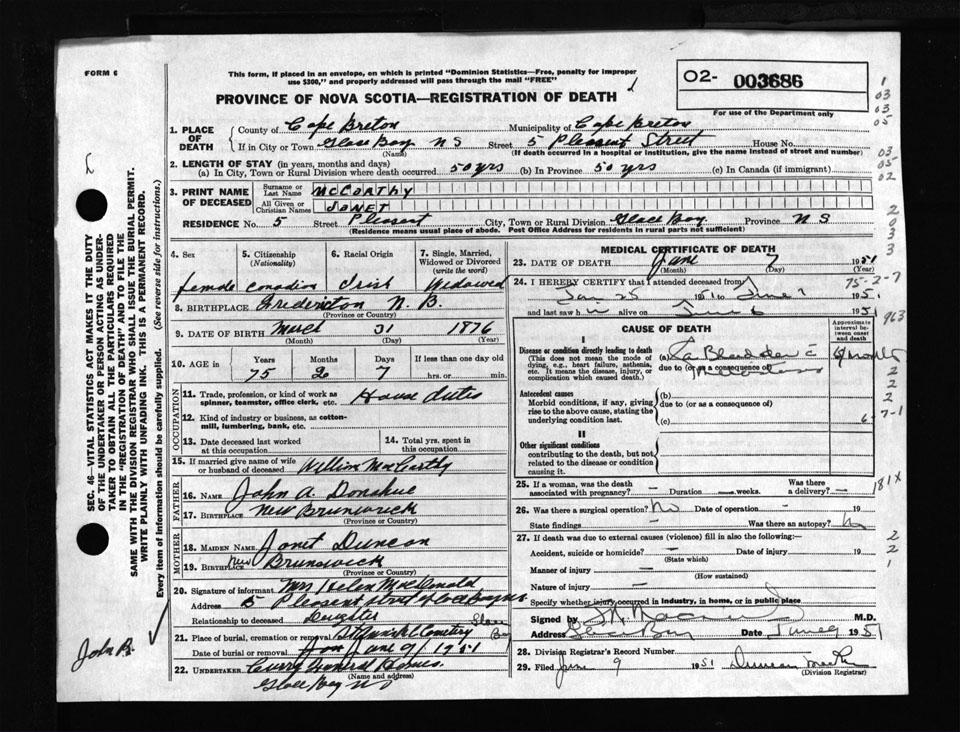 FORM 6
This form, if placed in an envelope, on which is printed "Dominion Statistics—Free, penalty for improper
use $300," and properly addressed will pass through the mail "FREE"
PROVINCE OF NOVA SCOTIA—REGISTRATION OF DEATH
02- 003686
For use of the Department only
1. PLACE OF DEATH { County of Cape Breton Municipality of Cape Breton
If in City or Town Glace Bay N S Street 5 Pleasant Street House No.
(Name) (If death occurred in a hospital or institution, give the name instead of street and number)
2. LENGTH OF STAY (in years, months and days)
(a) In City, Town or Rural Division where death occurred 50 yrs (b) In Province 50 yrs (c) In Canada (if immigrant)
3. PRINT NAME OF DECEASED { Surname or Last Name McCarthy
All Given or Christian Names Janet
RESIDENCE No. 5 Street Pleasant City, Town or Rural Division Glace Bay Province N S
(Residence means usual place of abode. Post Office Address for residents in rural parts not sufficient)
4. Sex
female
5. Citizenship
(Nationality)
Canadian
6. Racial Origin
Irish
7. Single, Married,
Widowed or Divorced
(write the word)
Widowed
8. BIRTHPLACE Fredericton N. B.
(Province or Country)
9. DATE OF BIRTH March 31 1876
(Month) (Day) (Year)
10. AGE in Years Months Days If less than one day old
75 2 7 hrs. or min.
OCCUPATION
11. Trade, profession, or kind of work as
spinner, teamster, office clerk, etc. House duties
12. Kind of industry or business, as cotton-
mill, lumbering, bank, etc.
13. Date deceased last worked
at this occupation
14. Total yrs. spent in
this occupation
15. If married give name of wife
or husband of deceased William MacCarthy
FATHER
16. Name John A. Donahue
17. Birthplace New Brunswick
(Province or Country)
MOTHER
18. Maiden Name Janet Duncan
19. Birthplace New Brunswick
(Province or Country)
20. Signature of informant Mrs Helen MacDonald
Address 5 Pleasant Street Glace Bay NS
Relationship to deceased Daughter
21. Place of burial, cremation or removal Cemetery Glace Bay
Date of burial or removal June 9/1951
22. UNDERTAKER Curry Funeral Homes
(Name and address)
Glace Bay NS
MEDICAL CERTIFICATE OF DEATH
23. DATE OF DEATH June 7 1951
(Month) (Day) (Year)
24. I HEREBY CERTIFY that I attended deceased from
Jan 25 1951 to June 7 1951
and last saw h alive on June 6 1951
CAUSE OF DEATH
Approximate
interval be-
tween onset
and death
I
Disease or condition directly leading to death
(This does not mean the mode of
dying, e.g., heart failure, asthenia,
etc. It means the disease, injury, or
complication which caused death.)
(a) Ca Bladder c
due to (or as a consequence of)
months
Antecedent causes
Morbid conditions, if any, giving
rise to the above cause, stating the
underlying condition last.
(b)
due to (or as a consequence of)
(c)
II
Other significant conditions
contributing to the death, but not
related to the disease or condition
causing it.
25. If a woman, was the death
associated with pregnancy? — Duration weeks. Was there
a delivery? —
26. Was there a surgical operation? No Date of operation — 19
State findings — Was there an autopsy? No
27. If death was due to external causes (violence) fill in also the following:—
Accident, suicide or homicide? — Date of injury — 19
(State which)
Manner of injury —
(How sustained)
Nature of injury —
Specify whether injury occurred in industry, in home, or in public place
Signed by M.D.
Address Glace Bay Date June 9 1951
28. Division Registrar's Record Number
29. Filed June 9 1951 Duncan
(Division Registrar)
SEC. 46—VITAL STATISTICS ACT MAKES IT THE DUTY
OF THE UNDERTAKER OR PERSON ACTING AS UNDER-
TAKER TO OBTAIN ALL THE PARTICULARS REQUIRED
IN THE "REGISTRATION OF DEATH" AND TO FILE THE
SAME WITH THE DIVISION REGISTRAR WHO SHALL ISSUE THE BURIAL PERMIT.
WRITE PLAINLY WITH UNFADING INK. THIS IS A PERMANENT RECORD.
Every item of information should be carefully supplied. (See reverse side for instructions.)
John B.
1
03
03
05
03
05
02
2
0
3
3
75-2-7
963
2
2
2
6-7-1
181X
2
2
1